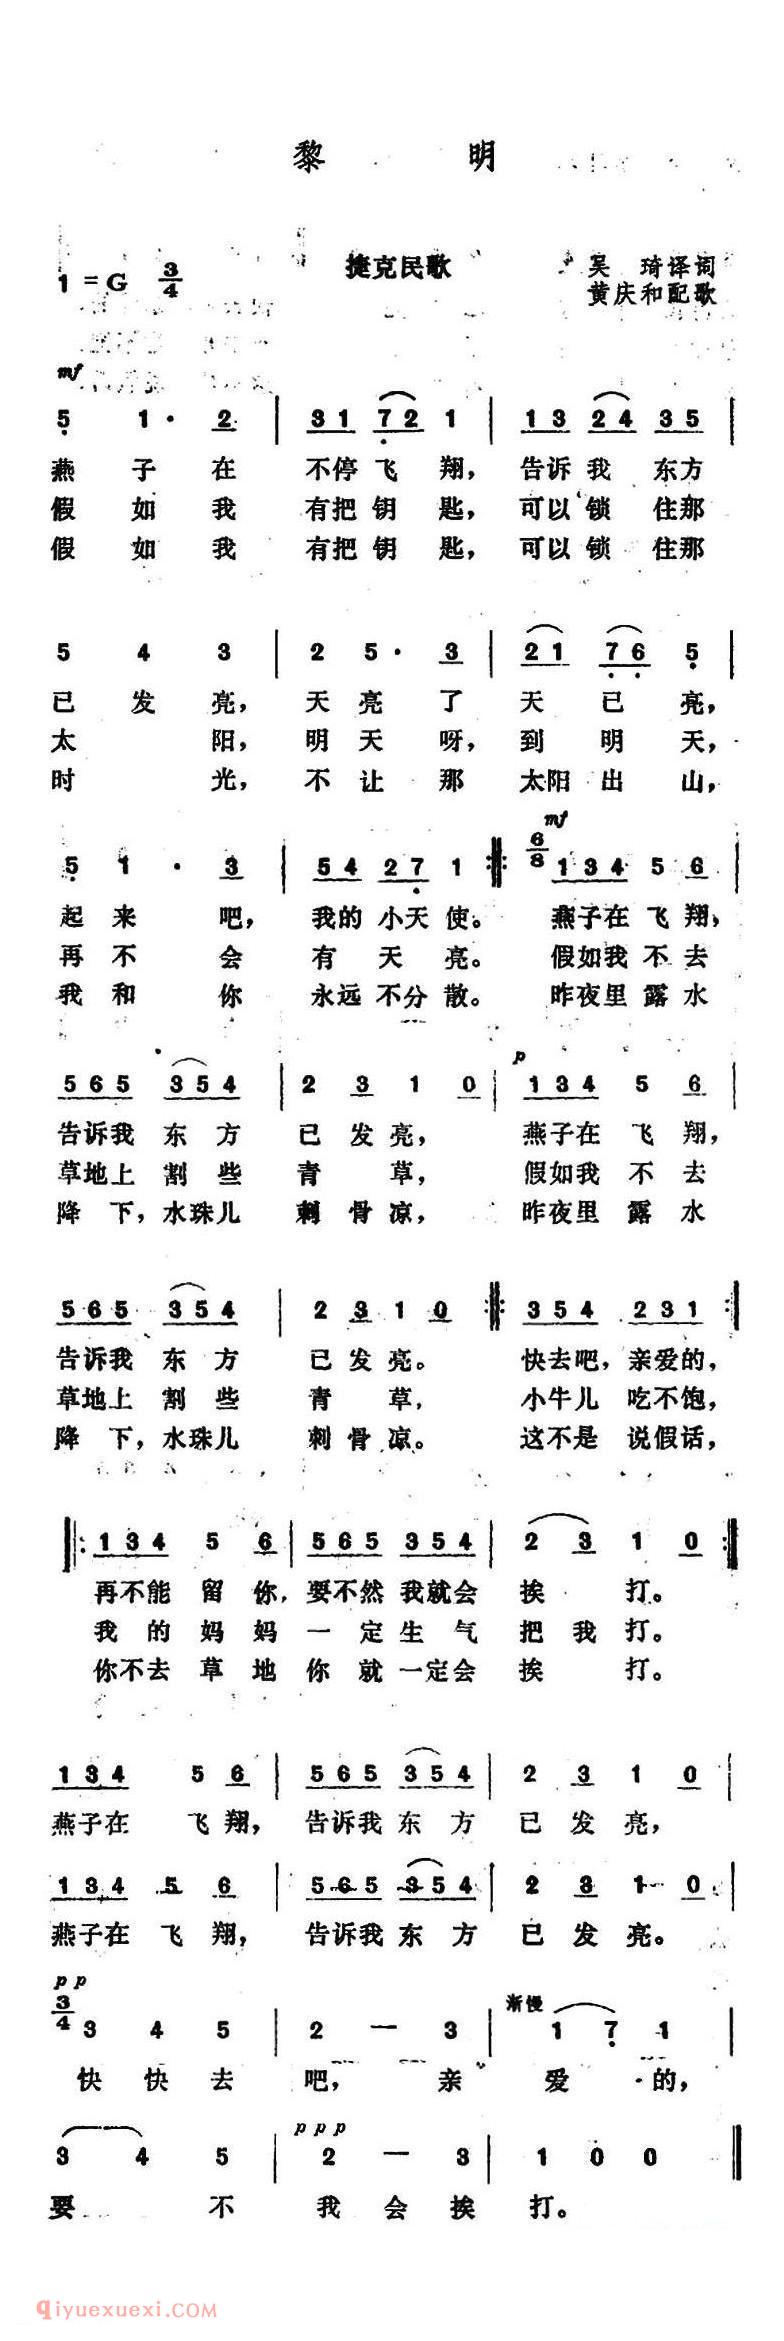 黎 明
捷克民歌
吴 琦译词
1 = G 3/4
黄庆和配歌
mf
5 1· 2 | 31 72 1 | 13 24 35 |
燕 子 在 不停 飞 翔， 告诉 我 东方
假 如 我 有把 钥 匙， 可以 锁 住那
假 如 我 有把 钥 匙， 可以 锁 住那
5 4 3 | 2 5· 3 | 21 76 5 |
已 发 亮， 天 亮 了 天 已 亮，
太 阳， 明 天 呀， 到 明 天，
时 光， 不 让 那 太阳 出 山，
mf
5 1· 3 | 54 27 1 :||: 6/8 134 5 6 |
起 来 吧， 我的 小天 使。 燕子在 飞 翔，
再 不 会 有 天 亮。 假如我 不 去
我 和 你 永远 不分 散。 昨夜里 露 水
p
565 354 | 2 3 1 0 | 134 5 6 |
告诉我 东 方 已 发 亮， 燕子在 飞 翔，
草地上 割 些 青 草， 假如我 不 去
降 下，水珠儿 刺 骨 凉， 昨夜里 露 水
565 354 | 2 3 1 0 :||: 354 231 :||
告诉我 东 方 已 发 亮。 快去吧，亲爱的，
草地上 割 些 青 草， 小牛儿 吃不饱，
降 下，水珠儿 刺 骨 凉。 这不是 说假话，
||: 134 5 6 | 565 354 | 2 3 1 0 :||
再不能 留 你，要不然 我就会 挨 打。
我 的 妈 妈 一 定 生 气 把 我 打。
你不去 草 地 你 就 一定会 挨 打。
134 5 6 | 565 354 | 2 3 1 0 |
燕子在 飞 翔， 告诉我 东 方 已 发 亮，
134 5 6 | 565 354 | 2 3 1 0 |
燕子在 飞 翔， 告诉我 东 方 已 发 亮。
pp 渐慢
3/4 3 4 5 | 2 — 3 | 1 7 1 |
快 快 去 吧， 亲 爱 的，
ppp
3 4 5 | 2 — 3 | 1 0 0 ||
要 不 我 会 挨 打。
qiyuexuexi.COM